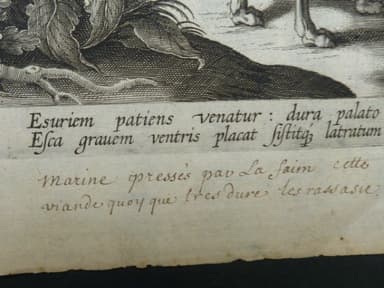 Esuriem patiens venatur: dura palato
Esca grauem ventris placat sistitq₃ latratum
marine pressés par La faim cette
viande quoy que tres dure les rassasie